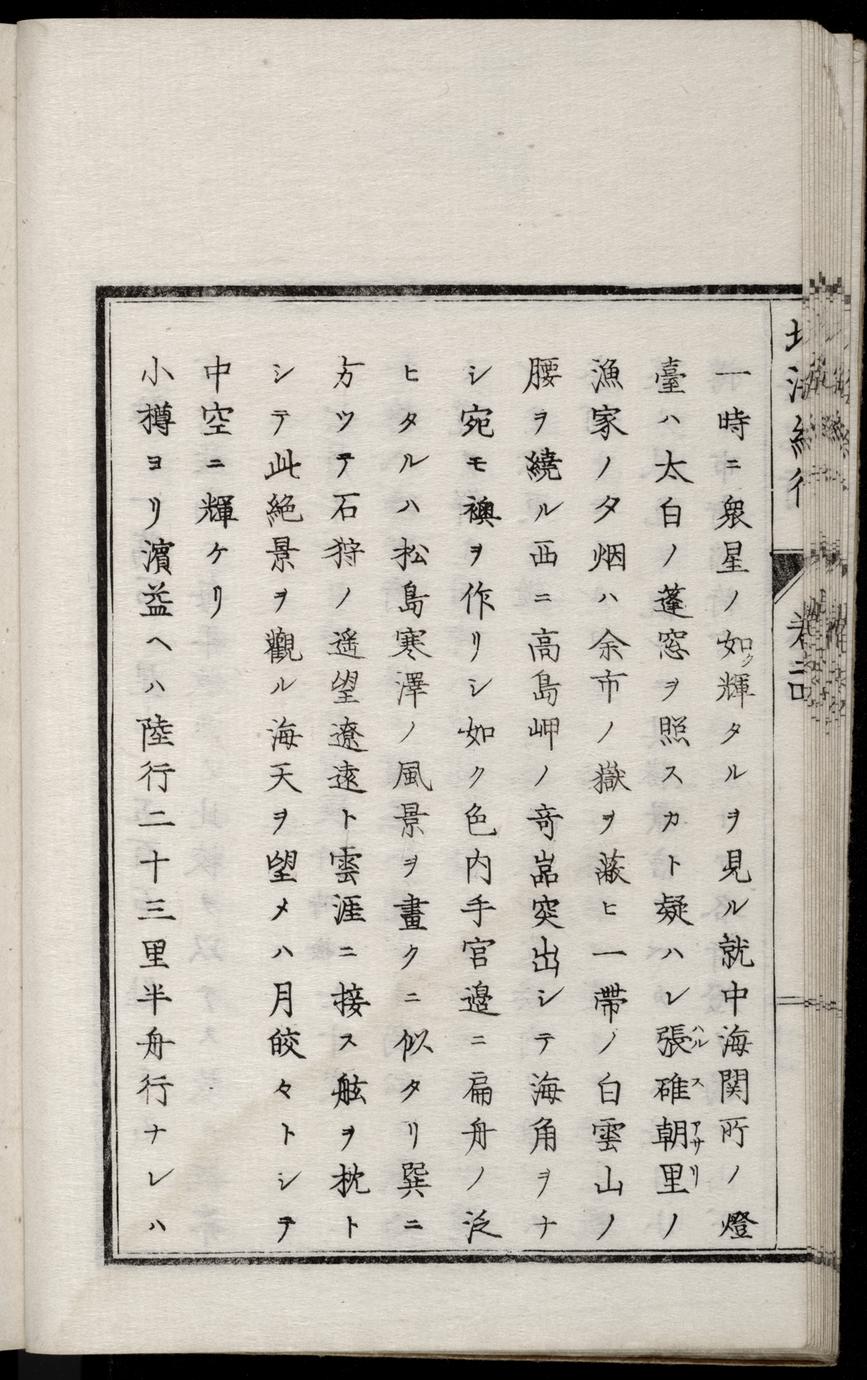 北海紀行 巻二
一時ニ衆星ノ如ロク輝タルヲ見ル就中海関所ノ燈
臺ハ太白ノ蓬窓ヲ照スカト疑ハレ張ハル碓ス朝アサ里リノ
漁家ノタ烟ハ余市ノ嶽ヲ蔽ヒ一帶ノ白雲山ノ
腰ヲ繞ル西ニ高島岬ノ竒嵓突出シテ海角ヲナ
シ宛モ襖ヲ作リシ如ク色内手宮邉ニ扁舟ノ泛
ヒタルハ松島寒澤ノ風景ヲ畫クニ似タリ巽ニ
方ツテ石狩ノ遥望遼遠ト雲涯ニ接ス舷ヲ枕ト
シテ此絶景ヲ觀ル海天ヲ望メハ月皎々トシテ
中空ニ輝ケリ
小樽ヨリ濱益ヘハ陸行二十三里半舟行ナレハ